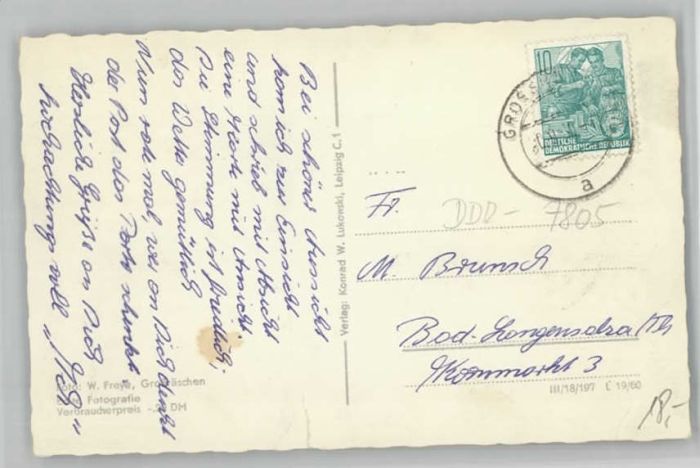 Bei schöner Aussicht
kam ich zur Einsicht
und schrieb mit Absicht
eine Karte mit Ansicht.
Die Stimmung ist friedlich,
das Wetter gemütlich
Nun rate mal, wer an Dich denkt
der Post das Porto schenkt
Herzliche Grüße an Dich
hochachtung voll "Ich"
Verlag: Konrad W. Lukowski, Leipzig C. 1
10
DEUTSCHE
DEMOKRATISCHE REPUBLIK
GROSS
a
Fr.
DDD - 7805
M. Brunsch
Bad-Langensalza/Th
Kornmarkt 3
Foto: W. Freye, Großräschen
Fotografie
Verbraucherpreis DM
III/18/197 L 19/60
18,-